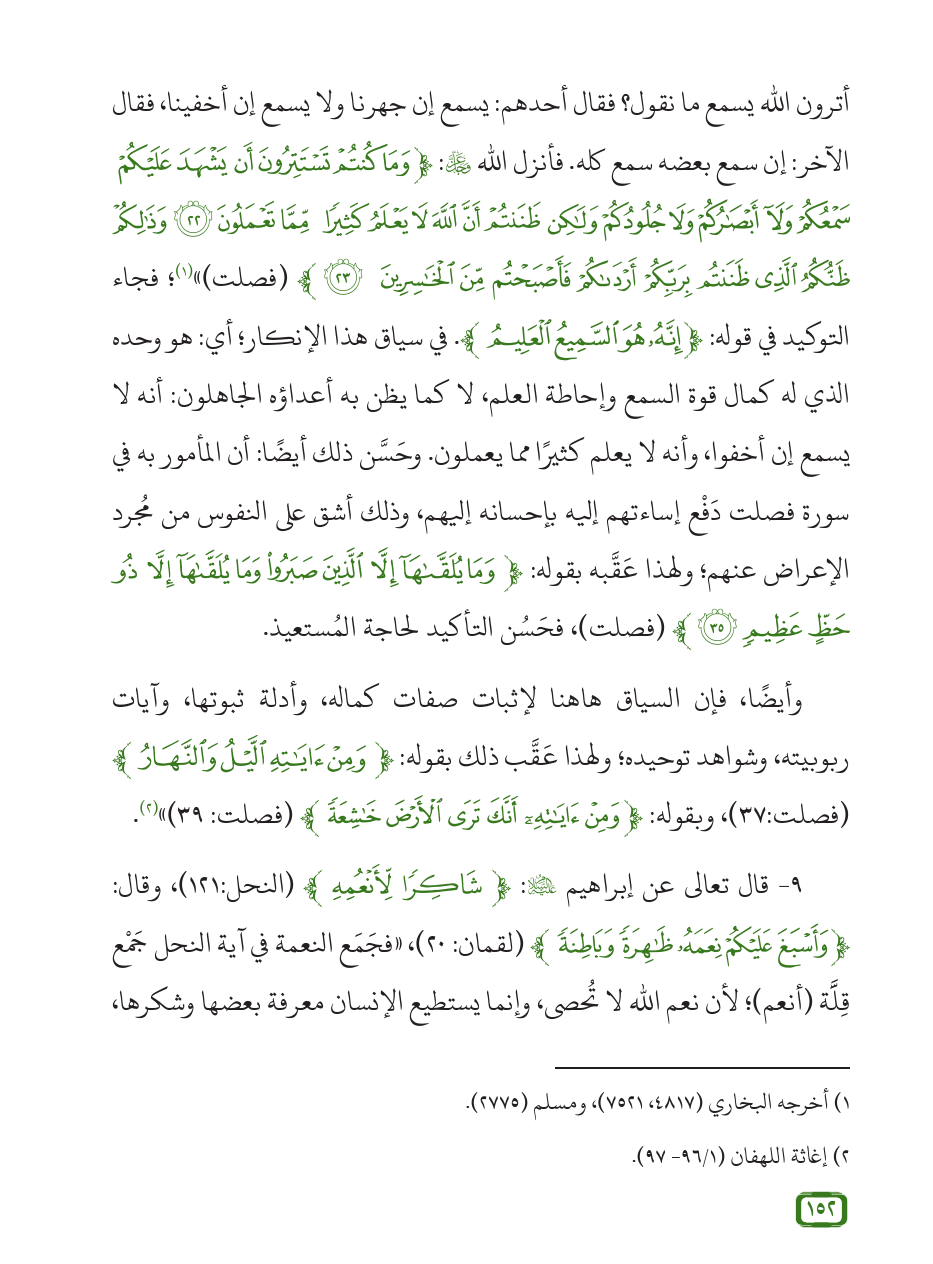 أترون الله يسمع ما نقول؟ فقال أحدهم: يسمع إن جهرنا ولا يسمع إن أخفينا، فقال
الآخر: إن سمع بعضه سمع كله. فأنزل الله ﷿: ﴿ وَمَا كُنتُمْ تَسْتَتِرُونَ أَن يَشْهَدَ عَلَيْكُمْ
سَمْعُكُمْ وَلَآ أَبْصَٰرُكُمْ وَلَا جُلُودُكُمْ وَلَٰكِن ظَنَنتُمْ أَنَّ ٱللَّهَ لَا يَعْلَمُ كَثِيرًا مِّمَّا تَعْمَلُونَ ٢٢ وَذَٰلِكُمْ
ظَنُّكُمُ ٱلَّذِى ظَنَنتُم بِرَبِّكُمْ أَرْدَىٰكُمْ فَأَصْبَحْتُم مِّنَ ٱلْخَٰسِرِينَ ٢٣ ﴾ (فصلت)»(١)؛ فجاء
التوكيد في قوله: ﴿ إِنَّهُۥ هُوَ ٱلسَّمِيعُ ٱلْعَلِيمُ ﴾. في سياق هذا الإنكار؛ أي: هو وحده
الذي له كمال قوة السمع وإحاطة العلم، لا كما يظن به أعداؤه الجاهلون: أنه لا
يسمع إن أخفوا، وأنه لا يعلم كثيرًا مما يعملون. وحَسَّن ذلك أيضًا: أن المأمور به في
سورة فصلت دَفْع إساءتهم إليه بإحسانه إليهم، وذلك أشق على النفوس من مُجرد
الإعراض عنهم؛ ولهذا عَقَّبه بقوله: ﴿ وَمَا يُلَقَّىٰهَآ إِلَّا ٱلَّذِينَ صَبَرُوا۟ وَمَا يُلَقَّىٰهَآ إِلَّا ذُو
حَظٍّ عَظِيمٍ ٣٥ ﴾ (فصلت)، فحَسُن التأكيد لحاجة المُستعيذ.
وأيضًا، فإن السياق هاهنا لإثبات صفات كماله، وأدلة ثبوتها، وآيات
ربوبيته، وشواهد توحيده؛ ولهذا عَقَّب ذلك بقوله: ﴿ وَمِنْ ءَايَٰتِهِ ٱلَّيْلُ وَٱلنَّهَارُ ﴾
(فصلت:٣٧)، وبقوله: ﴿ وَمِنْ ءَايَٰتِهِۦٓ أَنَّكَ تَرَى ٱلْأَرْضَ خَٰشِعَةً ﴾ (فصلت: ٣٩)»(٢).
٩- قال تعالى عن إبراهيم ﵇: ﴿ شَاكِرًا لِّأَنْعُمِهِ ﴾ (النحل:١٢١)، وقال:
﴿ وَأَسْبَغَ عَلَيْكُمْ نِعَمَهُۥ ظَٰهِرَةً وَبَاطِنَةً ﴾ (لقمان: ٢٠)، «فجَمَع النعمة في آية النحل جَمْع
قِلَّة (أنعم)؛ لأن نعم الله لا تُحصى، وإنما يستطيع الإنسان معرفة بعضها وشكرها،
١) أخرجه البخاري (٤٨١٧، ٧٥٢١)، ومسلم (٢٧٧٥).
٢) إغاثة اللهفان (٩٦/١- ٩٧).
١٥٢